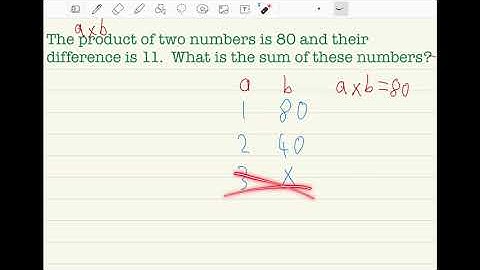 a x b
The product of two numbers is 80 and their
difference is 11. What is the sum of these numbers?
a b a x b = 80
1 80
2 40
3 X